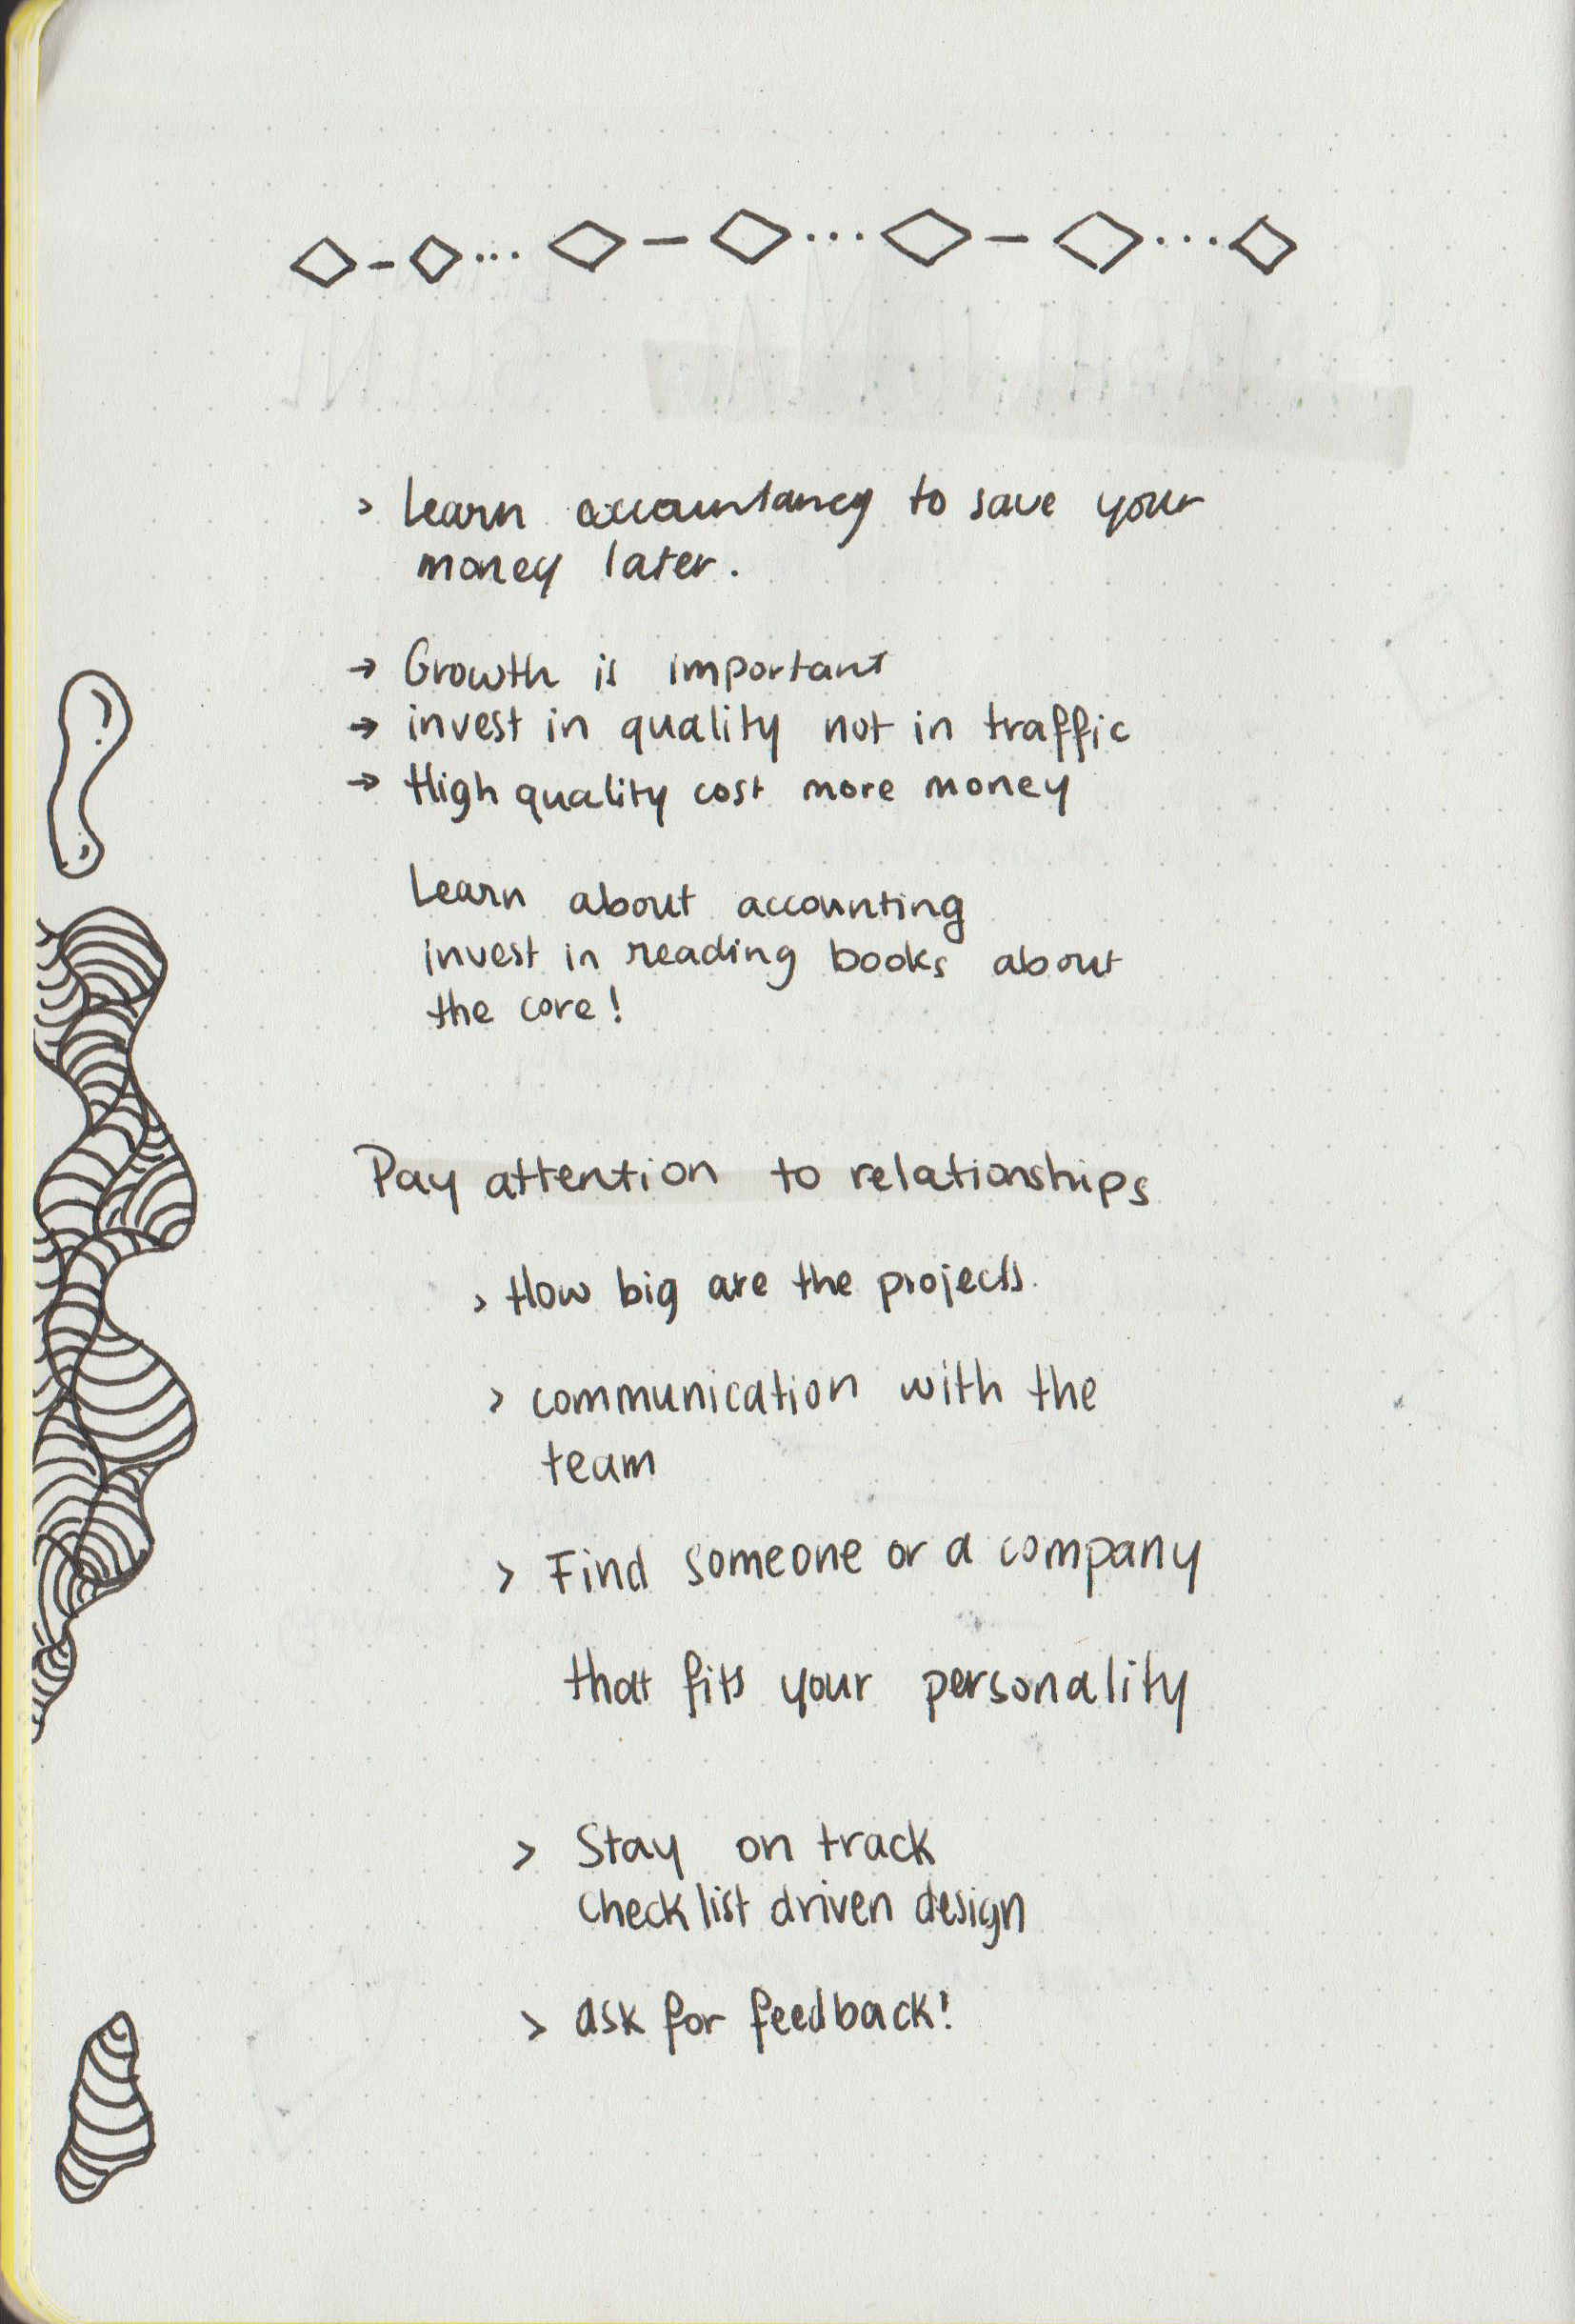 > Learn accountancy to save your
money later.
→ Growth is important
→ invest in quality not in traffic
→ High quality cost more money
Learn about accounting
invest in reading books about
the core!
Pay attention to relationships
> How big are the projects.
> communication with the
team
> Find someone or a company
that fits your personality
> Stay on track
Checklist driven design
> ask for feedback!